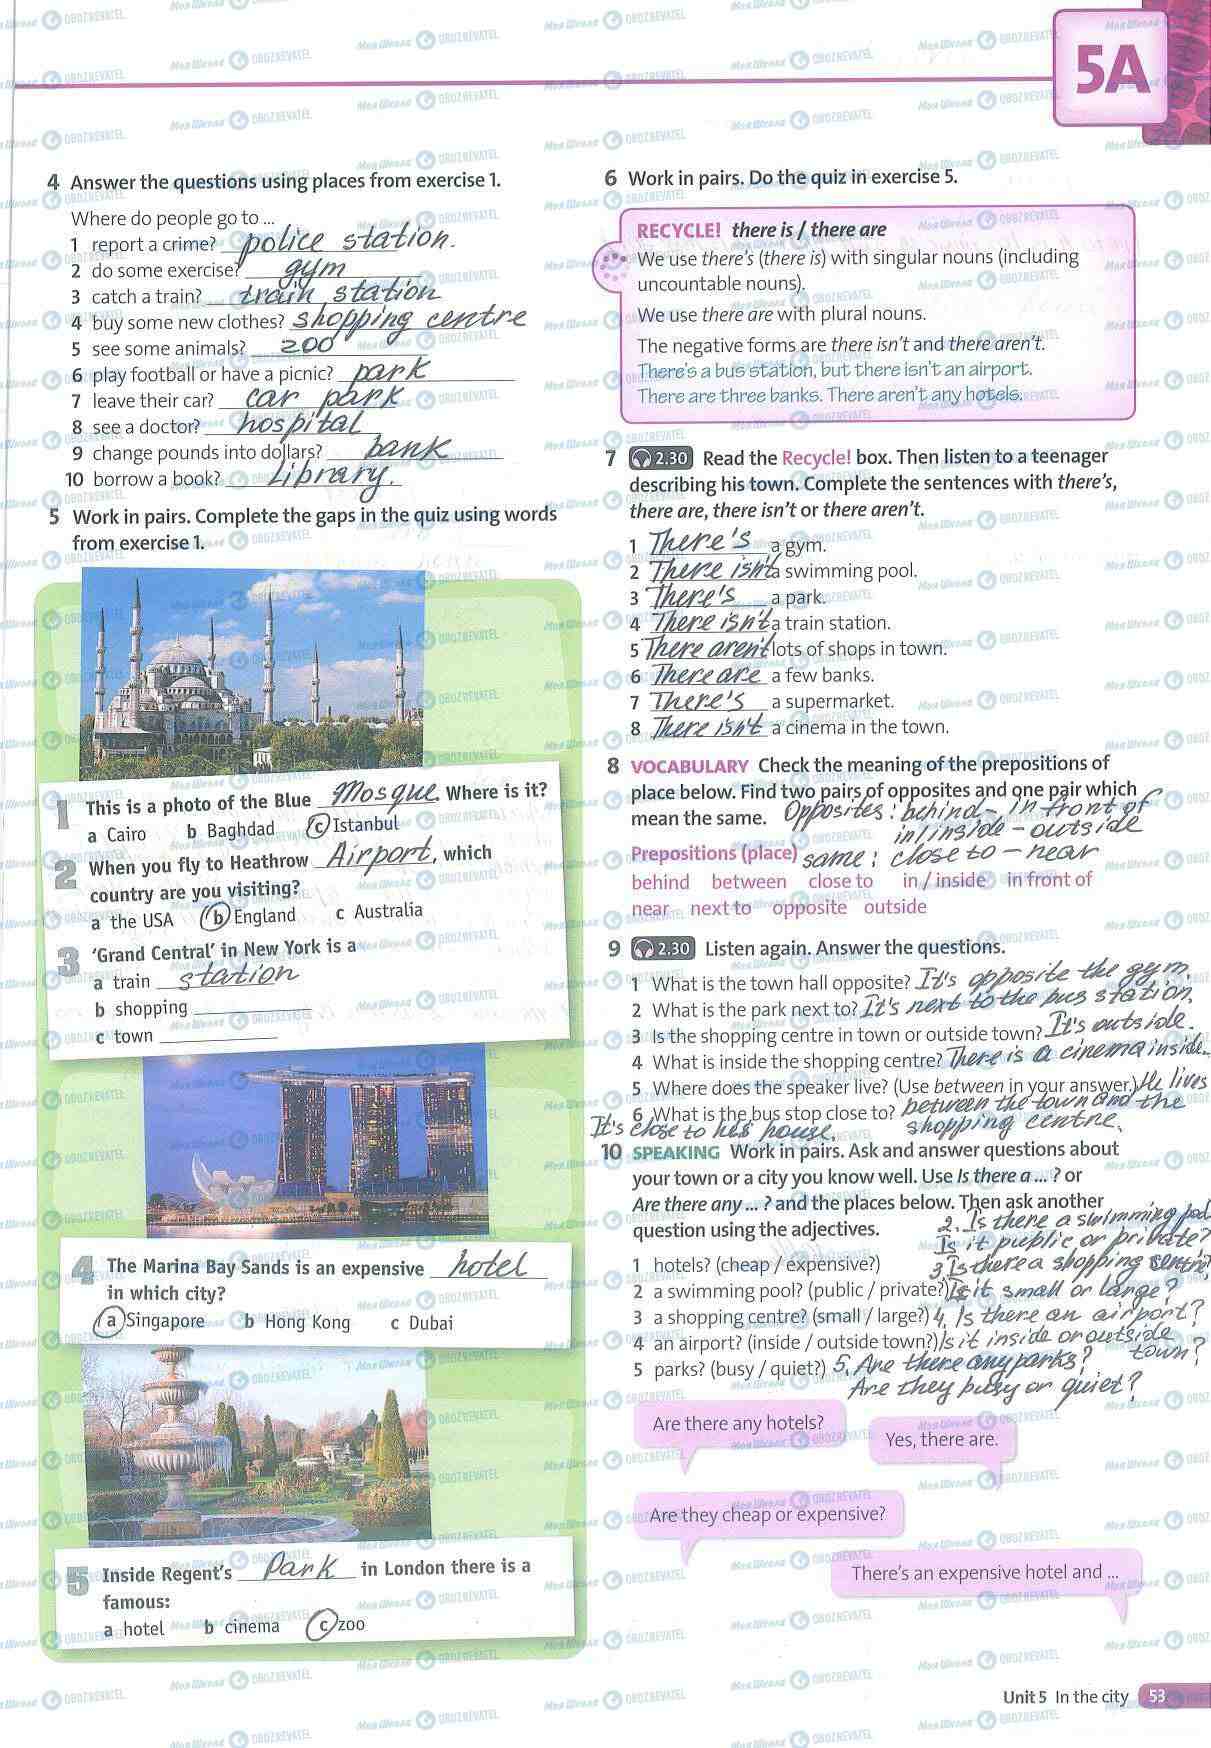 5A
4 Answer the questions using places from exercise 1.
Where do people go to ...
1 report a crime? police station.
2 do some exercise? gym
3 catch a train? train station
4 buy some new clothes? shopping centre
5 see some animals? zoo
6 play football or have a picnic? park
7 leave their car? car park
8 see a doctor? hospital
9 change pounds into dollars? bank
10 borrow a book? Library.
5 Work in pairs. Complete the gaps in the quiz using words
from exercise 1.
1 This is a photo of the Blue Mosque. Where is it?
a Cairo b Baghdad c Istanbul
2 When you fly to Heathrow Airport, which
country are you visiting?
a the USA b England c Australia
3 ‘Grand Central’ in New York is a
a train station
b shopping
c town
4 The Marina Bay Sands is an expensive hotel
in which city?
a Singapore b Hong Kong c Dubai
5 Inside Regent's Park in London there is a
famous:
a hotel b cinema c zoo
6 Work in pairs. Do the quiz in exercise 5.
RECYCLE! there is / there are
We use there's (there is) with singular nouns (including
uncountable nouns).
We use there are with plural nouns.
The negative forms are there isn't and there aren't.
There's a bus station, but there isn't an airport.
There are three banks. There aren't any hotels.
7 2.30 Read the Recycle! box. Then listen to a teenager
describing his town. Complete the sentences with there's,
there are, there isn't or there aren't.
1 There's a gym.
2 There isn't a swimming pool.
3 There's a park.
4 There isn't a train station.
5 There aren't lots of shops in town.
6 There are a few banks.
7 There's a supermarket.
8 There isn't a cinema in the town.
8 VOCABULARY Check the meaning of the prepositions of
place below. Find two pairs of opposites and one pair which
mean the same. Opposites: behind - in front of
in/inside - outside
Prepositions (place) same: close to - near
behind between close to in / inside in front of
near next to opposite outside
9 2.30 Listen again. Answer the questions.
1 What is the town hall opposite? It's opposite the gym.
2 What is the park next to? It's next to the bus station.
3 Is the shopping centre in town or outside town? It's outside.
4 What is inside the shopping centre? There is a cinema inside.
5 Where does the speaker live? (Use between in your answer.) He lives
between the town and the
6 What is the bus stop close to? shopping centre.
It's close to his house.
10 SPEAKING Work in pairs. Ask and answer questions about
your town or a city you know well. Use Is there a ... ? or
Are there any ... ? and the places below. Then ask another
question using the adjectives. 2. Is there a swimming pool
Is it public or private?
1 hotels? (cheap / expensive?) 3 Is there a shopping centre?
2 a swimming pool? (public / private?) Is it small or large?
3 a shopping centre? (small / large?) 4. Is there an airport?
4 an airport? (inside / outside town?) Is it inside or outside
town?
5 parks? (busy / quiet?) 5. Are there any parks?
Are they busy or quiet?
Are there any hotels?
Yes, there are.
Are they cheap or expensive?
There's an expensive hotel and ...
Unit 5 In the city 53
Моя Школа OBOZREVATEL